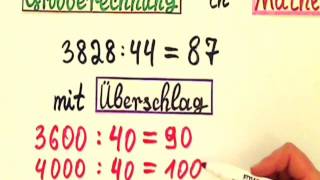 Grobberechnung in Mathe
3828:44=87
mit Überschlag
3600 : 40 = 90
4000 : 40 = 100